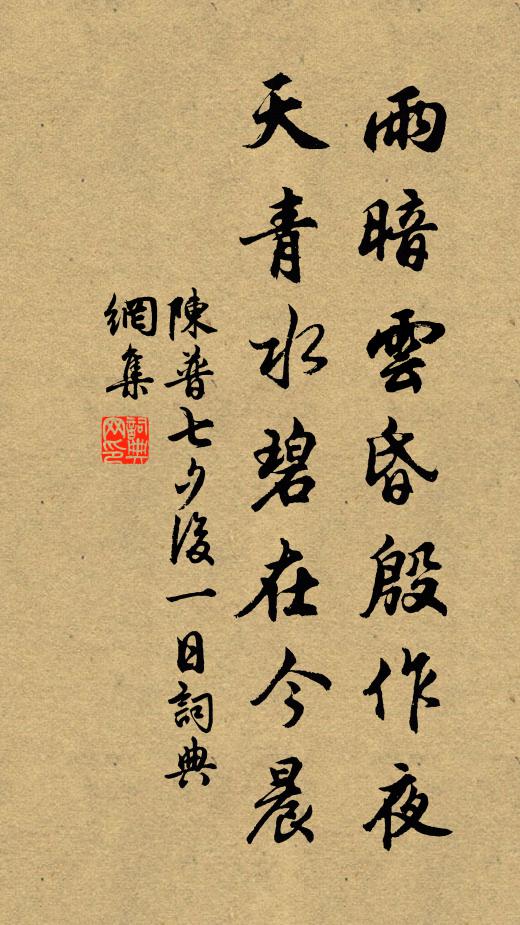 雨暗雲昏殷作夜
天青水碧在今晨
陳普七夕後一日詞典
網集
詞典
網印